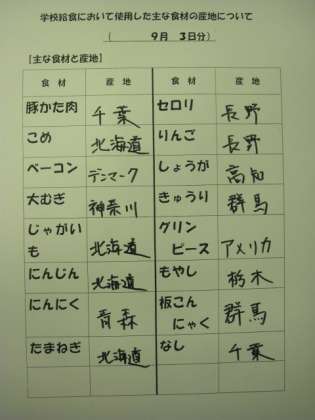 学校給食において使用した主な食材の産地について
（　9月　3日分）
【主な食材と産地】
食材 産地 食材 産地
豚かた肉 千葉 セロリ 長野
こめ 北海道 りんご 長野
ベーコン デンマーク しょうが 高知
大むぎ 神奈川 きゅうり 群馬
じゃがいも 北海道 グリンピース アメリカ
にんじん 北海道 もやし 栃木
にんにく 青森 板こんにゃく 群馬
たまねぎ 北海道 なし 千葉